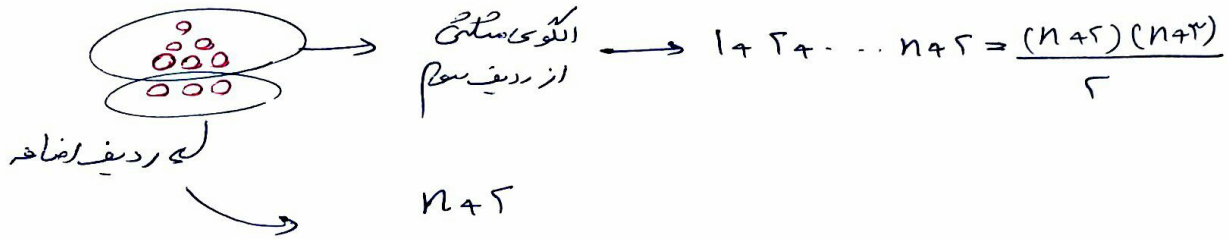 الگوی مثلثی
از ردیف سوم
۱+۲+...n+۲ = (n+۲)(n+۳)/۲
یه ردیف اضافه
n+۲